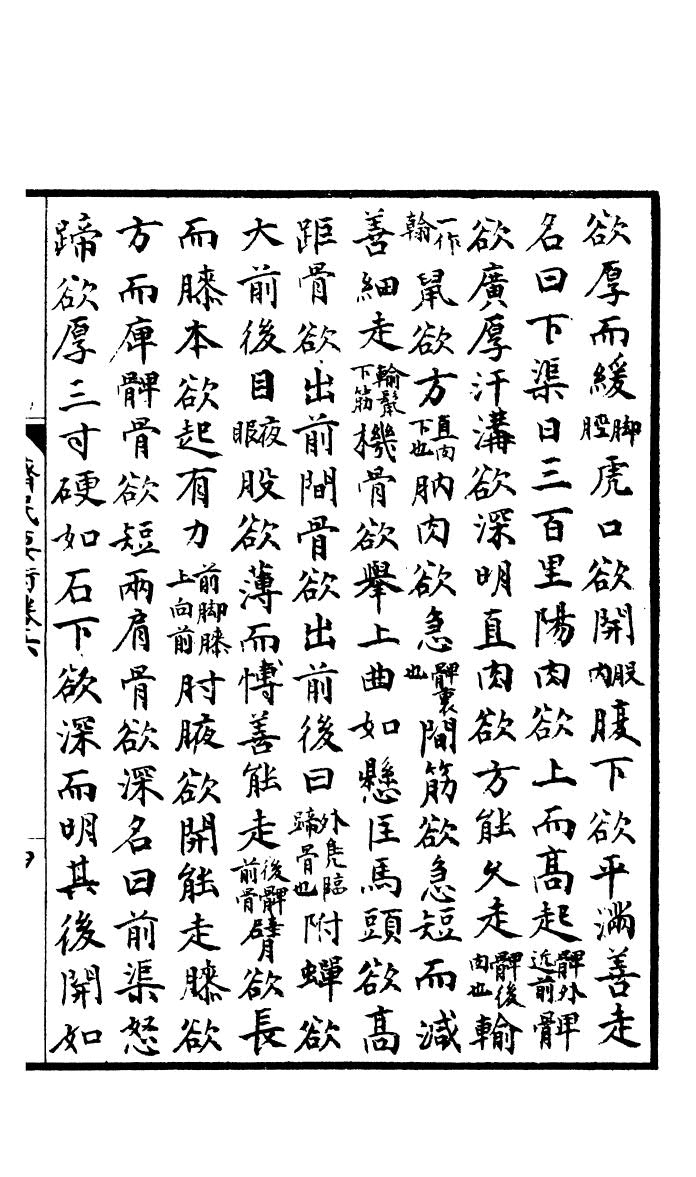 欲厚而緩脚脛虎口欲開股内腹下欲平滿善走
名曰下渠日三百里陽肉欲上而髙起髀外近前髀
欲廣厚汗溝欲深明直肉欲方能久走髀後肉也輸
一作翰鼠欲方直肉下也肭肉欲急髀裏也間筋欲急短而減
善細走輸鼠下筋機骨欲舉上曲如懸匡馬頭欲髙
距骨欲出前間骨欲出前後曰外鳧臨蹄骨也附蟬欲
大前後目夜眼股欲薄而愽善能走後髀前骨臂欲長
而膝本欲起有力前脚膝上向前肘腋欲開能走膝欲
方而庳髀骨欲短兩肩骨欲深名曰前渠怒
蹄欲厚三寸硬如石下欲深而明其後開如
齊民要術卷六